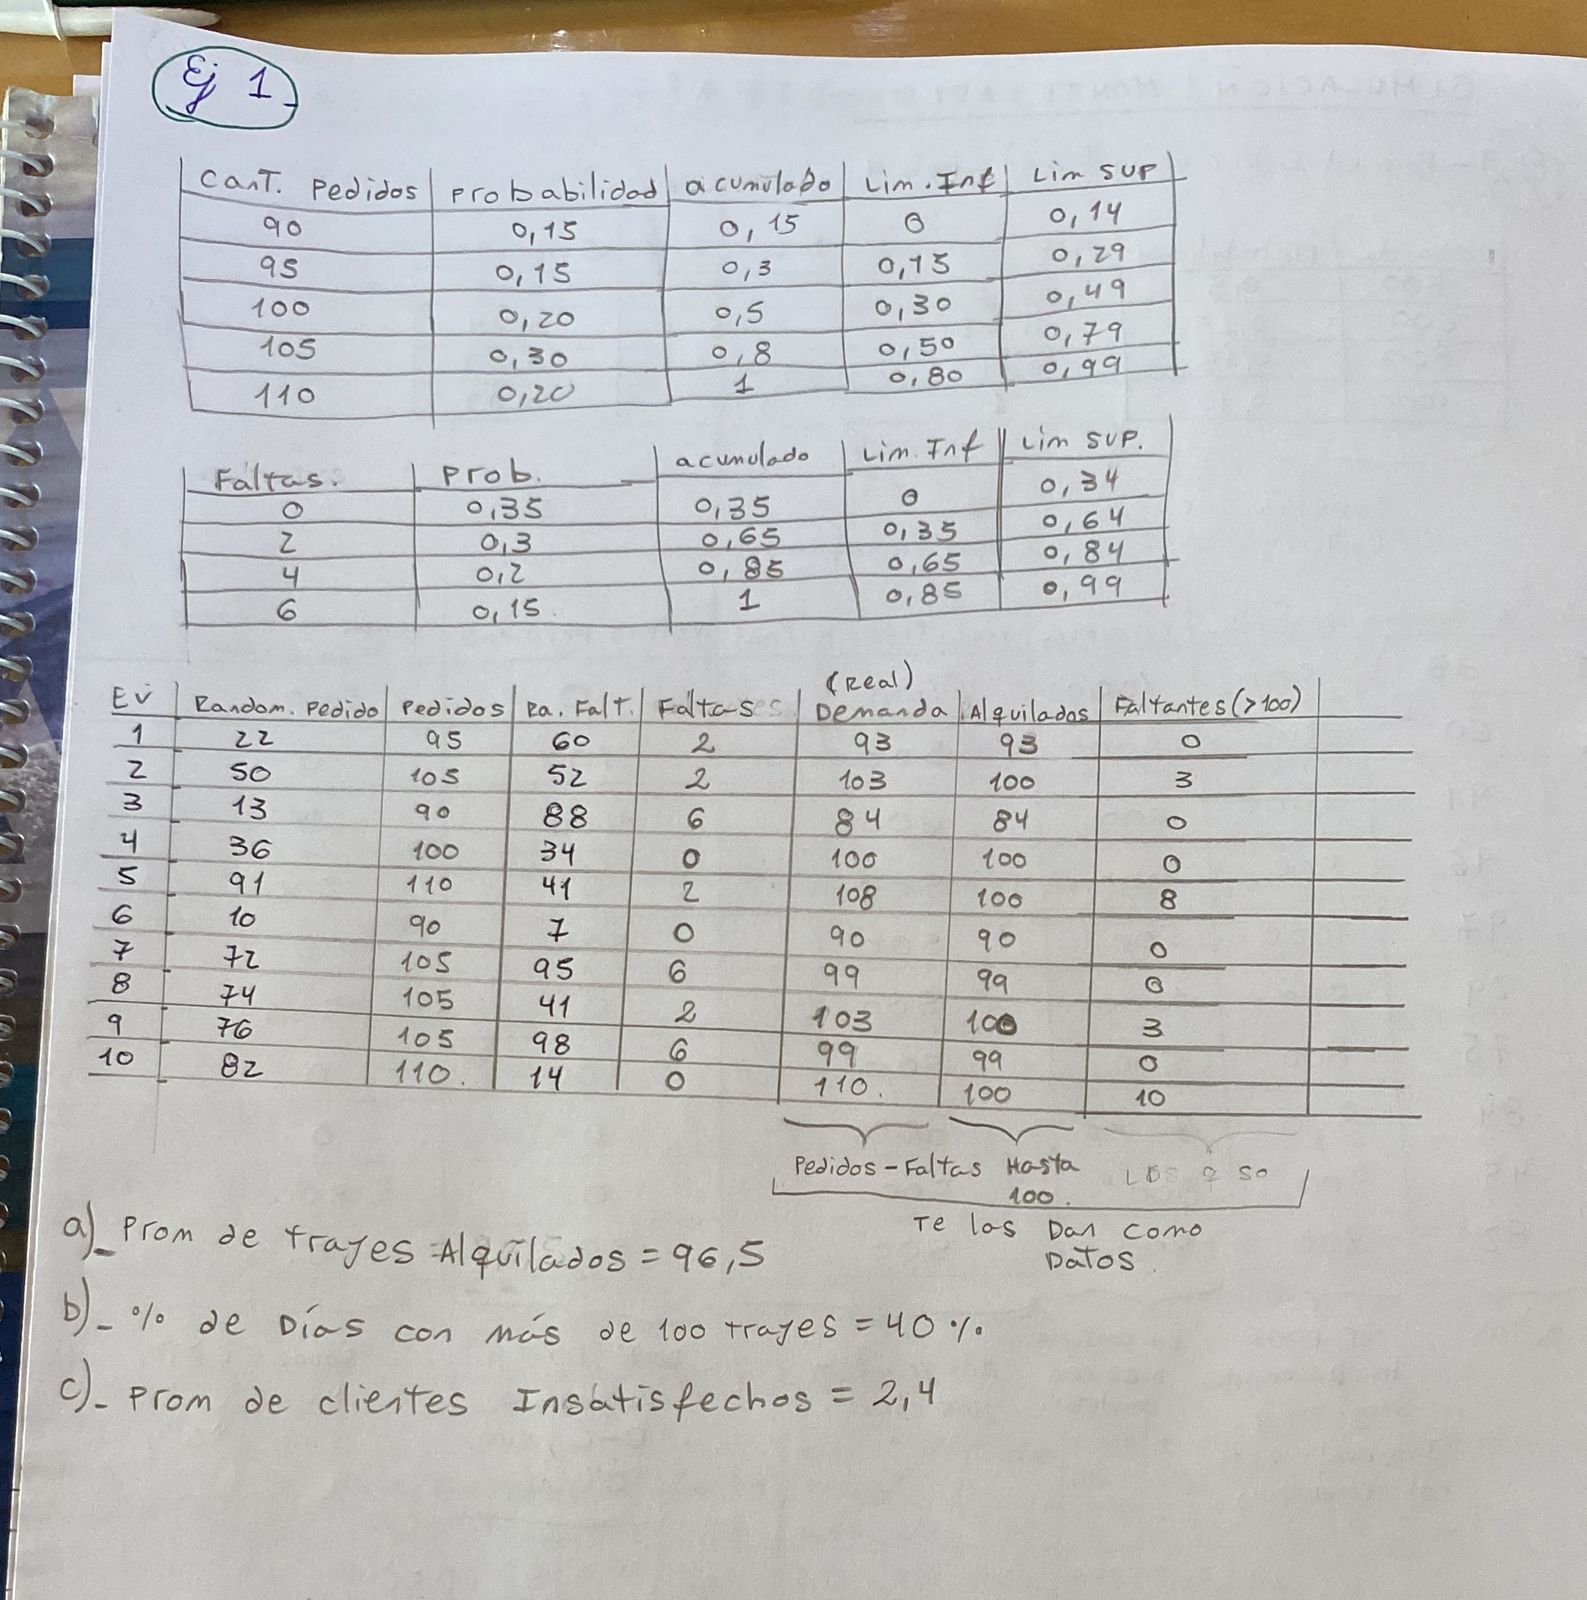 Ej 1
Cant. Pedidos | Probabilidad | acumulado | Lim. Inf | Lim SUP
90 | 0,15 | 0,15 | 0 | 0,14
95 | 0,15 | 0,3 | 0,15 | 0,29
100 | 0,20 | 0,5 | 0,30 | 0,49
105 | 0,30 | 0,8 | 0,50 | 0,79
110 | 0,20 | 1 | 0,80 | 0,99
Faltas. | Prob. | acumulado | Lim. Inf | Lim SUP.
0 | 0,35 | 0,35 | 0 | 0,34
2 | 0,3 | 0,65 | 0,35 | 0,64
4 | 0,2 | 0,85 | 0,65 | 0,84
6 | 0,15 | 1 | 0,85 | 0,99
(Real)
Ev | Random. Pedido | Pedidos | Ra. Falt. | Faltas | Demanda | Alquilados | Faltantes (>100)
1 | 22 | 95 | 60 | 2 | 93 | 93 | 0
2 | 50 | 105 | 52 | 2 | 103 | 100 | 3
3 | 13 | 90 | 88 | 6 | 84 | 84 | 0
4 | 36 | 100 | 34 | 0 | 100 | 100 | 0
5 | 91 | 110 | 41 | 2 | 108 | 100 | 8
6 | 10 | 90 | 7 | 0 | 90 | 90 | 0
7 | 72 | 105 | 95 | 6 | 99 | 99 | 0
8 | 74 | 105 | 41 | 2 | 103 | 100 | 3
9 | 76 | 105 | 98 | 6 | 99 | 99 | 0
10 | 82 | 110. | 14 | 0 | 110. | 100 | 10
Pedidos - Faltas Hasta 100. Los q so
Te los Dan como Datos.
a)_ Prom de trajes Alquilados = 96,5
b)_ % de Días con más de 100 trajes = 40 %
c)_ Prom de clientes Insatisfechos = 2,4